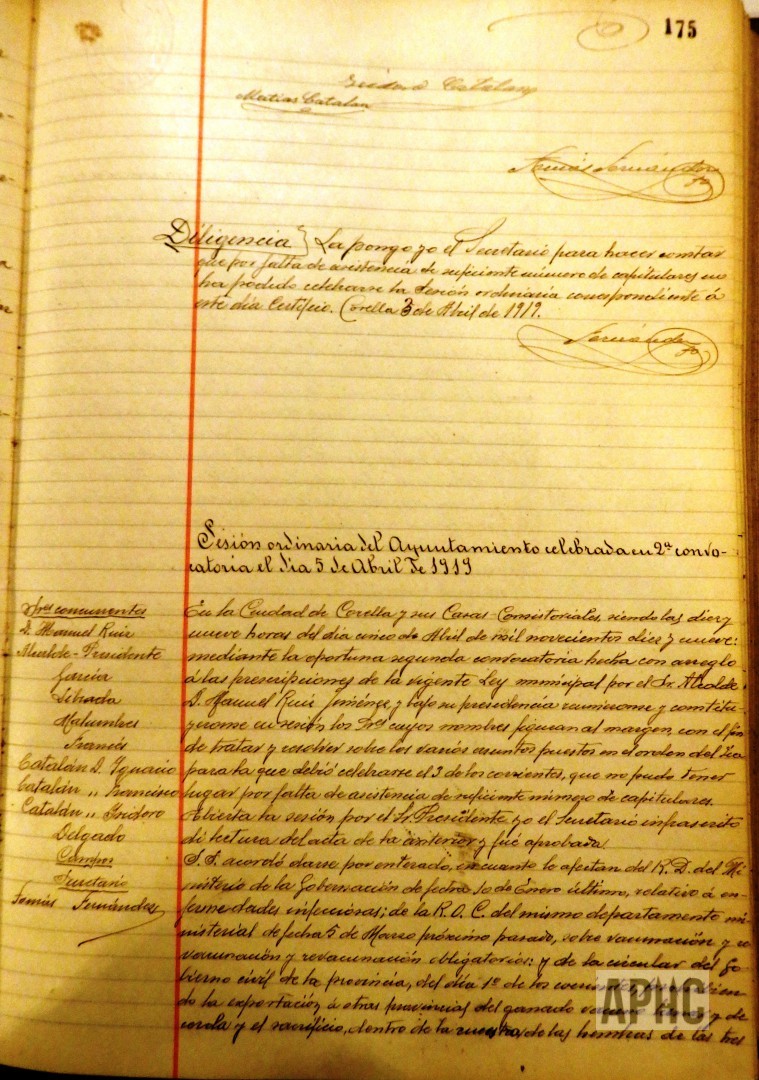 175
Isidoro Catalan
Matias Catalan
Tomás Fernández
Diligencia} La pongo yo el Secretario para hacer constar
que por falta de asistencia de suficiente número de capitulares no
ha podido celebrarse la Sesión ordinaria correspondiente á
este día Certifico. Corella 3 de Abril de 1919.
Fernández
Sesión ordinaria del Ayuntamiento celebrada en 2ª convo-
catoria el día 5 de Abril de 1919
Sres concurrentes
D. Manuel Ruiz
Alcalde-Presidente
García
Librada
Malumbres
Francés
Catalán D. Ignacio
Catalán ,, Francisco
Catalán ,, Isidoro
Delgado
Campos
Secretario
Tomás Fernández
En la Ciudad de Corella y sus Casas Consistoriales, siendo las diez y
nueve horas del día cinco de Abril de mil novecientos diez y nueve:
mediante la oportuna segunda convocatoria hecha con arreglo
á las prescripciones de la vigente Ley municipal por el Sr. Alcalde
D. Manuel Ruiz Jiménez, y bajo su presidencia reunieronse y constitu-
yeronse en sesión los Sres cuyos nombres figuran al margen, con el fin
de tratar y resolver sobre los varios asuntos puestos en el orden del día
para la que debió celebrarse el 3 de los corrientes, que no pudo tener
lugar por falta de asistencia de suficiente número de capitulares.
Abierta la sesión por el Sr. Presidente, yo el Secretario infrascrito
di lectura del acta de la anterior y fué aprobada.
S.S. acordó darse por enterado, en cuanto le afectan del R.D. del Mi-
nisterio de la Gobernación de fecha 10 de Enero último, relativo á en-
fermedades infecciosas; de la R.O.C. del mismo departamento mi-
nisterial de fecha 5 de Marzo próximo pasado, sobre vacunación y
vacunación y revacunación obligatorios: y de la circular del Go-
bierno civil de la provincia, del día 1º de los corrientes,
do la exportación á otras provincias del ganado vacuno, lanar y de
cerda y el sacrificio, dentro de la nuestra, de las hembras de las tres
APIC